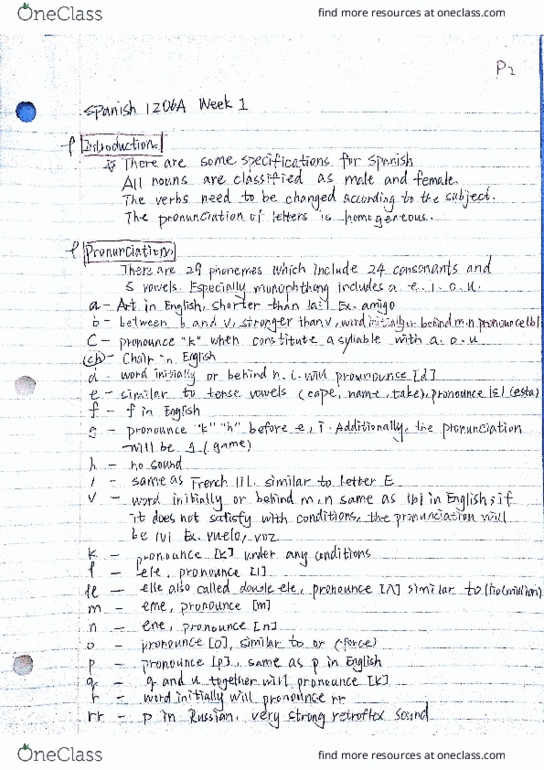 OneClass
find more resources at oneclass.com
P2
Spanish 1206A Week 1
Introduction
There are some specifications for Spanish
All nouns are classified as male and female.
The verbs need to be changed according to the subject.
The pronunciation of letters is homogeneous.
Pronunciation
There are 29 phonemes which include 24 consonants and
5 vowels. Especially monophthong includes a. e. i. o. u.
a - Art in English, shorter than Ex. amigo
b - between b and v, stronger than v, word initially behind m.n pronounce [b]
C - pronounce "k" when constitute a syllable with a. o. u
(ch) - Chair in English
d - word initially or behind n. l. will pronounce [d]
e - similar to tense vowels (cape, name, take), pronounce [ε] (esta)
f - f in English
g - pronounce "k" "h" before e, i. Additionally, the pronunciation
will be g (game)
h - no sound
i - same as French similar to letter E
v - word initially or behind m.n same as [b] in English; if
it does not satisfy with conditions, the pronunciation will
be [v] Ex. vuelo, voz
k - pronounce [k] under any conditions
l - ele, pronounce [l]
ll - elle also called double ele, pronounce [λ] similar to
m - eme, pronounce [m]
n - ene, pronounce [n]
o - pronounce [o], similar to or (force)
p - pronounce [p], same as p in English
q - q and u together will pronounce [k]
r - word initially will pronounce rr
rr - p in Russian, very strong retroflex sound
OneClass
find more resources at oneclass.com